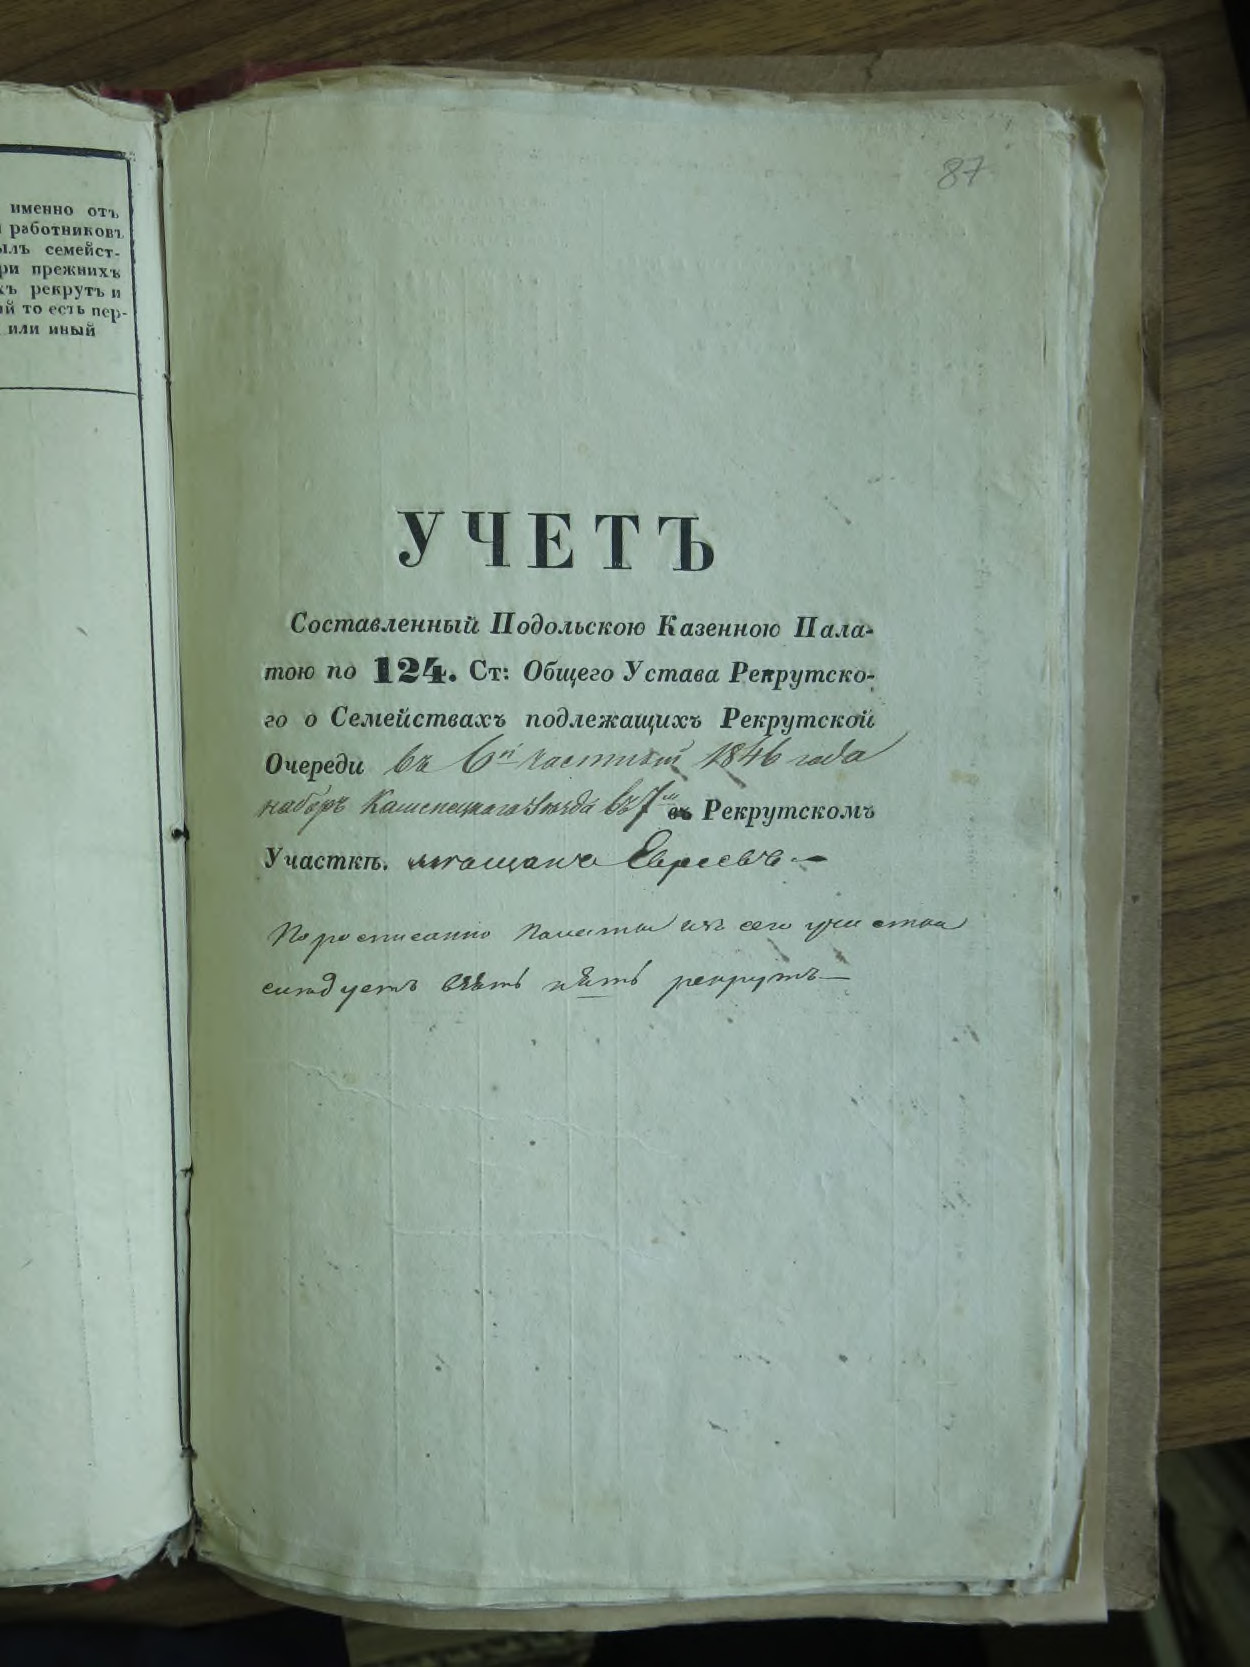 именно отъ
работниковъ
ылъ семейст-
ри прежнихъ
хъ рекрутъ и
ой то есть пер-
или иный
87
УЧЕТЪ
Составленный Подольскою Казенною Пала-
тою по 124. Ст: Общего Устава Рекрутско-
го о Семействахъ подлежащихъ Рекрутской
Очереди въ 6й частный 1846 года
наборъ Каменецкаго уѣзда въ 7м въ Рекрутскомъ
Участкѣ. мѣщанъ Евреевъ.—
По росписанію Палаты изъ сего участка
слѣдуетъ взять пять рекрутъ—